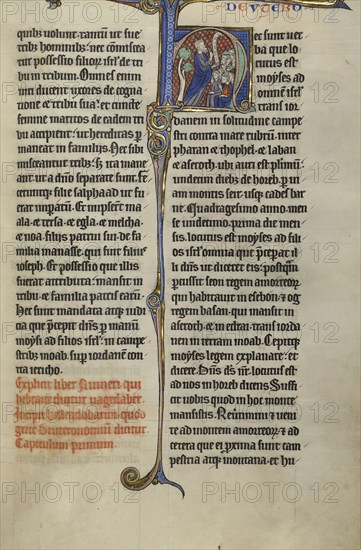 DEUTERO
quibus uolunt. tantum ut sue
tribus hominibus. ne commisceat
tur possessio filiorum israel. de tri
bu in tribum. Omnes enim
uiri ducent uxores de cogna
tione et tribu sua. et cuncte
femine maritos de eadem tri
bu accipient. ut hereditas per
maneat in familiis. Nec sibi
misceantur tribus. Set ita mane
ant. ut a domino separate sunt. Fe
ceruntque filie salphaad ut fu
erat imperatum. Et nupserunt ma
ala. et tersa. et egla. et melcha.
et noa. filiis patrui sui. de fa
milia manasse. qui fuit filius
ioseph. Et possessio que illis
fuerat attributa. mansit in
tribu. et familia patris earum.
Hec sunt mandata atque iudi
cia que precepit dominus per manum
moysi ad filios israel. in campe
stribus moab. super iordanem con
tra iericho.
Explicit liber Numeri. qui
hebraice dicitur uagedaber.
Incipit helleaddabarim. quod
grece Deuteronomium dicitur.
Capitulum primum.
Hec sunt uer
ba que lo
cutus est
moyses ad
omnem israel
trans ior
danem in solitudine campe
stri contra mare rubrum. inter
pharan et thophel. et laban
et aseroth. ubi auri est plurimum.
undecim diebus de horeb. per ui
am montis seir. usque cades bar
ne. Quadragesimo anno. men
se undecimo. prima die men
sis. locutus est moyses ad fili
os israel omnia que preceperat il
li dominus ut diceret eis. postquam
percussit seon regem amorreorum
qui habitauit in esebon. et og
regem basan. qui mansit in
aseroth. et in edrai. trans iorda
nen in terram moab. Cepitque
moyses legem explanare. et
dicere. Dominus deus noster. locutus est
ad nos in horeb dicens. Suffi
cit uobis quod in hoc monte
mansistis. Reuertimini et ueni
te ad montem amorreorum. et ad
cetera que ei proxima sunt cam
pestria atque montana. et hu